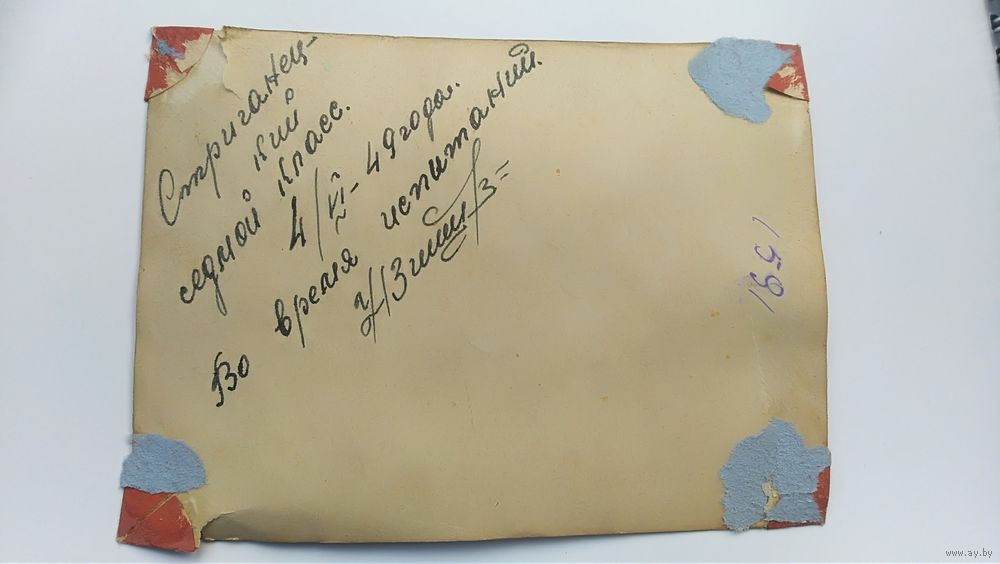 Стриганец-
кий
седмой класс.
4/VI-49 года.
Во время испитаний.
1591
www.ay.by